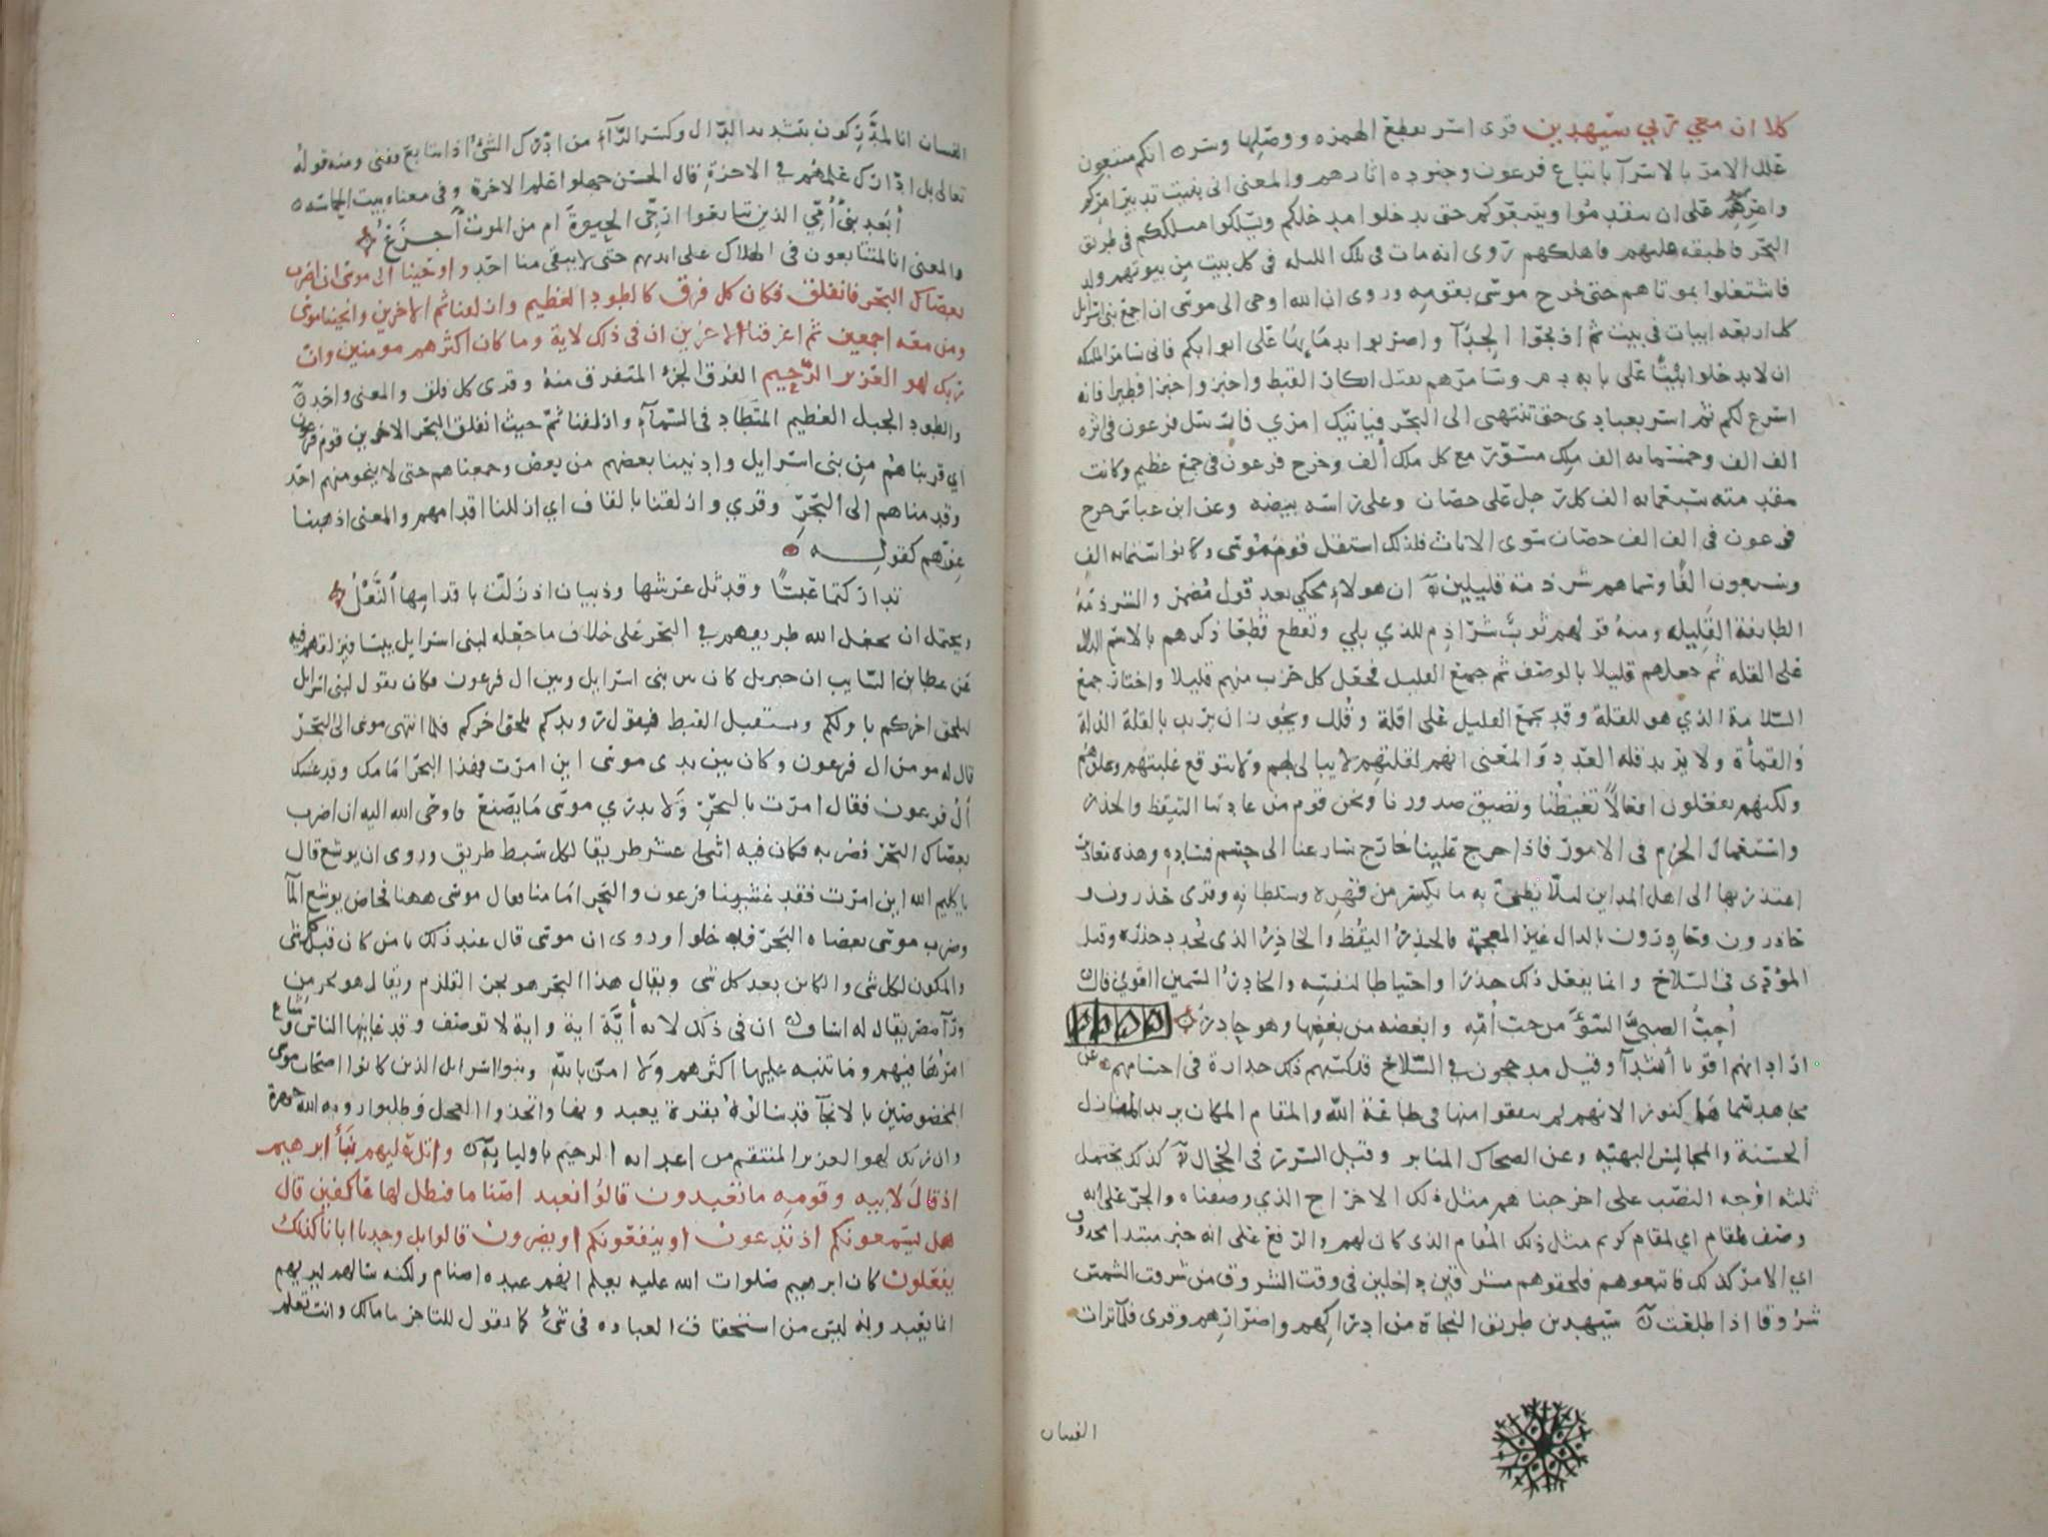 كلا ان معي ربي سيهدين قرى اسر بقطع الهمزه ووصلها وسر انكم متبعون
علل الامر بالاسرآ باتباع فرعون وجنوده اثارهم والمعنى انى بنيت تدبير امركم
وامرهم على ان تتقدموا ويتبعوكم حتى يدخلوا مدخلكم ويسلكوا مسلككم فى طريق
البحر فاطبقه عليهم فاهلكهم روى انه مات فى تلك الليله فى كل بيت من بيوتهم ولد
فاشتغلوا بموتاهم حتى خرج موسى بقومه وروى ان الله اوحى الى موسى ان اجمع بنى اسرايل
كل اربعه ابيات فى بيت ثم اذبحوا الجدآ واضربوا بدمايها على ابوابكم فانى سامر الملايكه
ان لا يدخلوا بيتا على بابه دم وسامرهم بقتل ابكار القبط واخبزوا خبزا فطيرا فانه
اسرع لكم ثم اسر بعبادى حتى تنتهى الى البحر فياتيك امري فارسل فرعون فى اثره
الف الف وخمسمايه الف ملك مسور مع كل ملك ألف وخرج فرعون فى جمع عظيم وكانت
مقدمته سبعمايه الف كل رجل على حصان وعلى راسه بيضه وعن ابن عباس خرج
فرعون فى الف الف حصان سوى الاناث فلذلك استقل قوم موسى وكانوا ستمايه الف
وسبعون الفًا وسماهم شرذمة قليلين ان هولاء محكي بعد قول مضمر والشرذمة
الطايفة القليله ومنه قولهم ثوب شراذم للذي بلي وتقطع قطعا ذكرهم بالاسم الدال
على القله ثم جعلهم قليلا بالوصف ثم جمع القليل فجعل كل حزب منهم قليلا واختار جمع
السلامة الذي هو للقلة وقد يجمع القليل على اقلة وقلل ويجوز ان يريد بالقلة الذلة
والقمأة ولا يريد قلة العدد والمعنى انهم لقلتهم لا يبالى بهم ولا يتوقع غلبتهم وعلوهم
ولكنهم يفعلون افعالاً تغيظنا وتضيق صدورنا ونحن قوم من عادتنا التيقظ والحذر
واستعمال الحزم فى الامور فاذا خرج علينا خارج سارعنا الى حسم فساده وهذه معاذير
اعتذر بها الى اهل المداين لئلا يظن به ما يكسر من قهره وسلطانه وقرى حذرون
حاذرون وحادرون بالدال غير المعجمة فالحذر اليقظ والحاذر الذى يجدد حذره وقيل
المؤدى فى السلاح وانما يفعل ذلك حذرا واحتياطا لنفسه والحادر السمين القوي قال
أحب الصبي السوء من حب أمه وابغضه من بغضها وهو حادر
اراد انهم اقويا أشدآ وقيل مدججون في السلاح قد كسبهم ذلك حدارة فى اجسامهم عن
مجاهد سماها كنوزا لانهم لم ينفقوا منها فى طاعة الله والمقام المكان يريد المنازل
الحسنة والمجالس البهيه وعن الضحاك المنابر وقيل السرر فى الحجال كذلك يحتمل
ثلثه اوجه النصب على اخرجناهم مثل ذلك الاخراج الذي وصفناه والجر على انه
وصف لمقام اي لمقام كريم مثل ذلك المقام الذى كان لهم والرفع على انه خبر مبتدا محذوف
اي الامر كذلك فاتبعوهم فلحقوهم مشرقين داخلين فى وقت الشروق من شرقت الشمس
شروقا اذا طلعت سيهدين طريق النجاة من ادراكهم واضرارهم وقرى فلما ترات
الفيتان
الفيتان انا لمدّرِكون بتشديد الدال وكسر الرآء من ادرك الشئ اذا تتابع ففنى ومنه قوله
تعالى بل ادارك علمهم في الاخرة قال الحسن جهلوا علم الاخرة وفى معناه بيت الحماسه
أبعد بنى أمي الذين تتابعوا ارجى الحيوة ام من الموت أجزع
والمعنى انا لمتتابعون فى الهلاك على ايديهم حتى لا يبقى منا احد واوحينا الى موسى ان اضرب
بعصاك البحر فانفلق فكان كل فرق كالطود العظيم وازلفنا ثم الاخرين وانجينا موسى
ومن معه اجمعين ثم اغرقنا الاخرين ان فى ذلك لاية وما كان اكثرهم مومنين وان
ربك لهو العزيز الرحيم الفرق الجزء المتفرق منه وقرى كل فلق والمعنى واحد
والطود الجبل العظيم المنطاد فى السمآء وازلفنا ثم حيث انفلق البحر الاخرين قوم فرعون
اي قربناهم من بنى اسرايل وادنينا بعضهم من بعض وجمعناهم حتى لا ينجو منهم احد
وقدمناهم الى البحر وقري وازلقنا بالقاف اي ازللنا اقدامهم والمعنى اذهبنا
عزهم كقوله
تداركتما عبسًا وقد ثل عرشها وذبيان اذ زلت باقدامها النعل
ويحتمل ان يجعل الله طريقهم في البحر على خلاف ما جعله لبنى اسرايل يبسا فيزلقهم فيه
عن عطا بن السايب ان جبريل كان بين بنى اسرايل وبين ال فرعون فكان يقول لبنى اسرايل
ليلحق اخركم باولكم ويستقبل القبط فيقول رويدكم يلحق اخركم فلما انتهى موسى الى البحر
قال له مومن ال فرعون وكان بين يدى موسى اين امرت فهذا البحر امامك وقد غشيك
أل فرعون فقال امرت بالبحر ولا يدري موسى ما يصنع فاوحى الله اليه ان اضرب
بعصاك البحر فضربه فكان فيه اثنى عشر طريقا لكل سبط طريق وروى ان يوشع قال
يا كليم الله اين امرت فقد غشينا فرعون والبحر امامنا فقال موسى ههنا فخاض يوشع المآ
وضرب موسى بعصاه البحر فدخلوا وروى ان موسى قال عند ذلك يا من كان قبل كل شى
والمكون لكل شى والكاين بعد كل شى ويقال هذا البحر هو بحر القلزم ويقال هو بحر من
ورآ مصر يقال له اساف ان فى ذلك لايه أيَّة اية واية لا توصف وقد عاينها الناس وشاع
امرها فيهم وما تنبه عليها اكثرهم ولا امن بالله وبنو اسرايل الذين كانوا اصحاب موسى
المخصوصين بالانجآ قد سالوه بقرة يعبدونها واتخذوا العجل وطلبوا رويه الله جهرة
وان ربك لهو العزيز المنتقم من اعدايه الرحيم باوليايه واتل عليهم نبأ ابرهيم
اذ قال لابيه وقومه ما تعبدون قالوا نعبد اصناما فنظل لها عاكفين قال
هل يسمعونكم اذ تدعون او ينفعونكم او يضرون قالوا بل وجدنا ابانا كذلك
يفعلون كان ابرهيم صلوات الله عليه يعلم انهم عبده اصنام ولكنه سالهم ليريهم
ان ما يعبدونه ليس من استحقاق العباده فى شئ كما تقول للتاجر ما مالك وانت تعلم